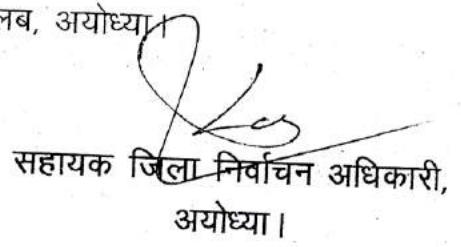 लब, अयोध्या।
सहायक जिला निर्वाचन अधिकारी,
अयोध्या।